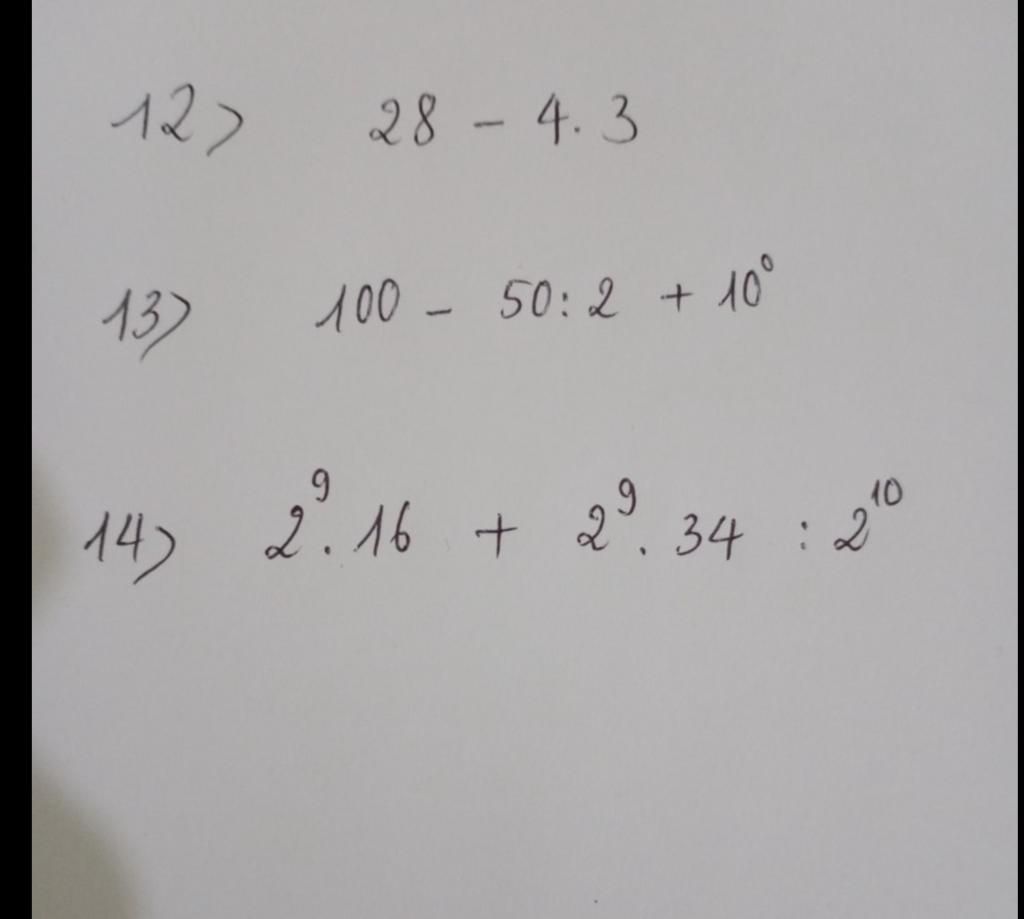 12> 28 - 4.3
13> 100 - 50:2 + 10⁰
14> 2⁹.16 + 2⁹.34 : 2¹⁰